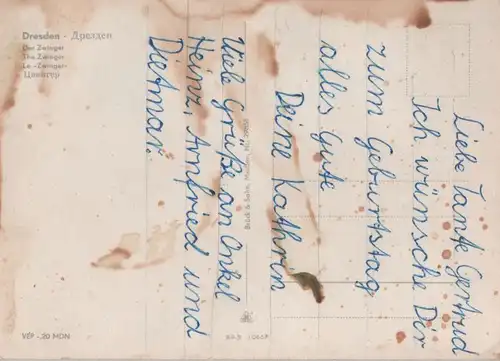 Dresden - Дрезден
Der Zwinger
The Zwinger
Le «Zwinger»
Цвингер
Liebe Tante Gertrud
Ich wünsche Dir
zum Geburtstag
alles Gute
Deine Kathrin
Viele Grüße an Onkel
Heinz, Arnfried und
Dietmar.
Brück & Sohn, Meißen,
VEP -.20 MDN